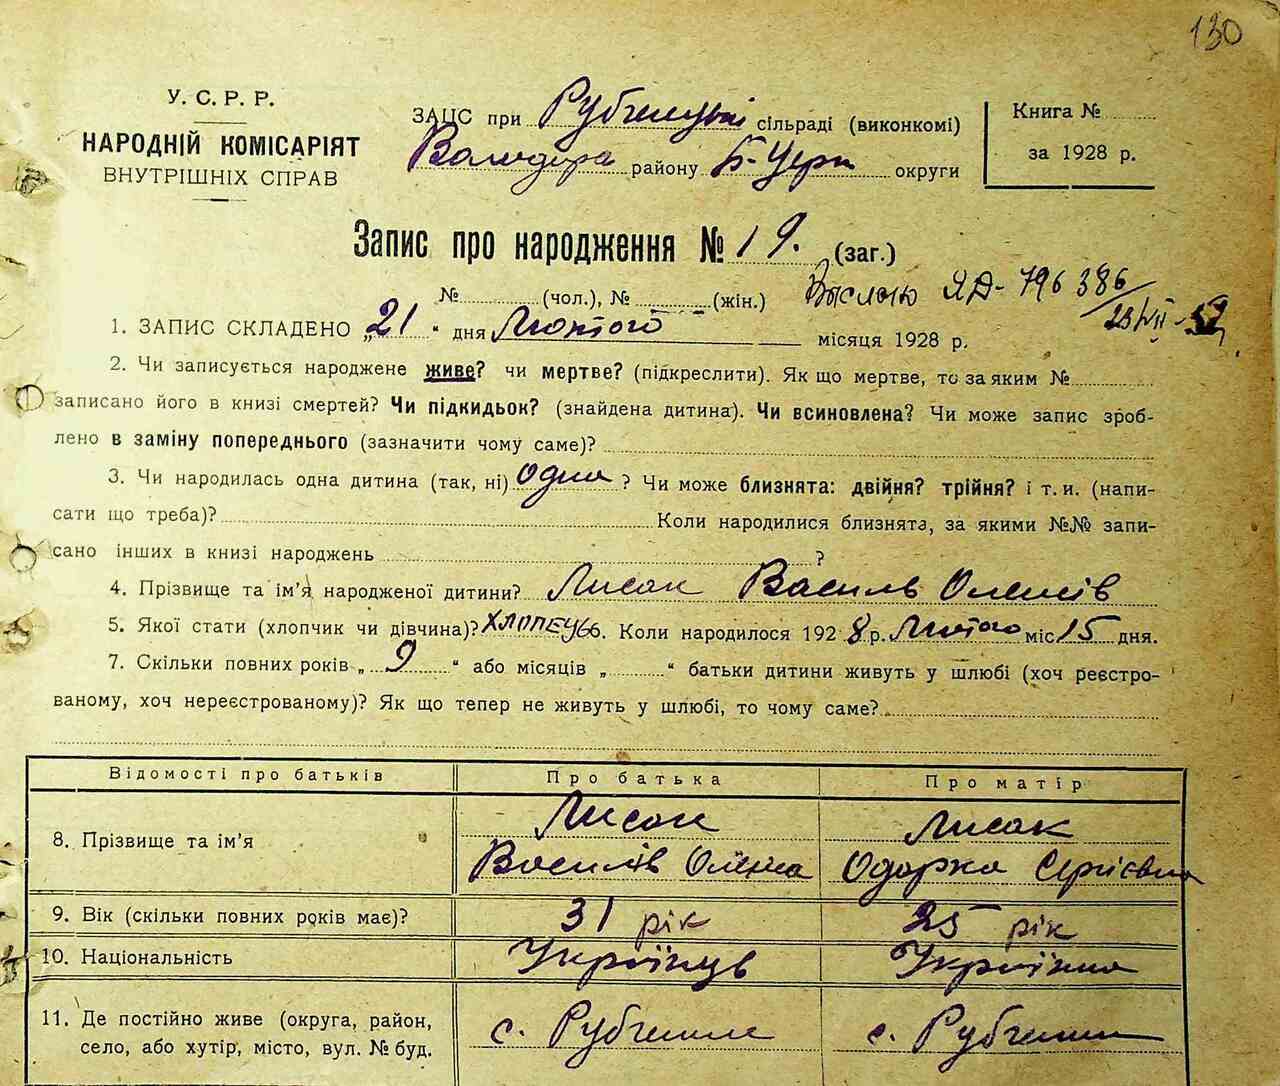 130
У. С. Р. Р.
НАРОДНІЙ КОМІСАРІЯТ
ВНУТРІШНІХ СПРАВ
ЗАЦС при Рубченецькій сільраді (виконкомі)
Володар району Б-Церк округи
Книга №
за 1928 р.
Запис про народження № 19. (заг.)
№ (чол.), № (жін.)
Выслано ЯД-796386
1. ЗАПИС СКЛАДЕНО „21“ дня Лютого місяця 1928 р.
2. Чи записується народжене живе? чи мертве? (підкреслити). Як що мертве, то за яким №
записано його в книзі смертей? Чи підкидьок? (знайдена дитина). Чи всиновлена? Чи може запис зроб-
лено в заміну попереднього (зазначити чому саме)?
3. Чи народилась одна дитина (так, ні) одна ? Чи може близнята: двійня? трійня? і т. и. (напи-
сати що треба)? Коли народилися близнята, за якими №№ запи-
сано інших в книзі народжень ?
4. Прізвище та ім'я народженої дитини? Лисак Василь
5. Якої стати (хлопчик чи дівчина)? хлопець 6. Коли народилося 1928 р. Лютого міс 15 дня.
7. Скільки повних років „ 9 “ або місяців „ “ батьки дитини живуть у шлюбі (хоч реєстро-
ваному, хоч нереєстрованому)? Як що тепер не живуть у шлюбі, то чому саме?
Відомості про батьків Про батька Про матір
8. Прізвище та ім'я Лисак Лисак
Одарка Сергієвна
9. Вік (скільки повних років має)? 31 рік 25 рік
10. Національність Українець Українка
11. Де постійно живе (округа, район,
село, або хутір, місто, вул. № буд.
с. Рубченки с. Рубченки